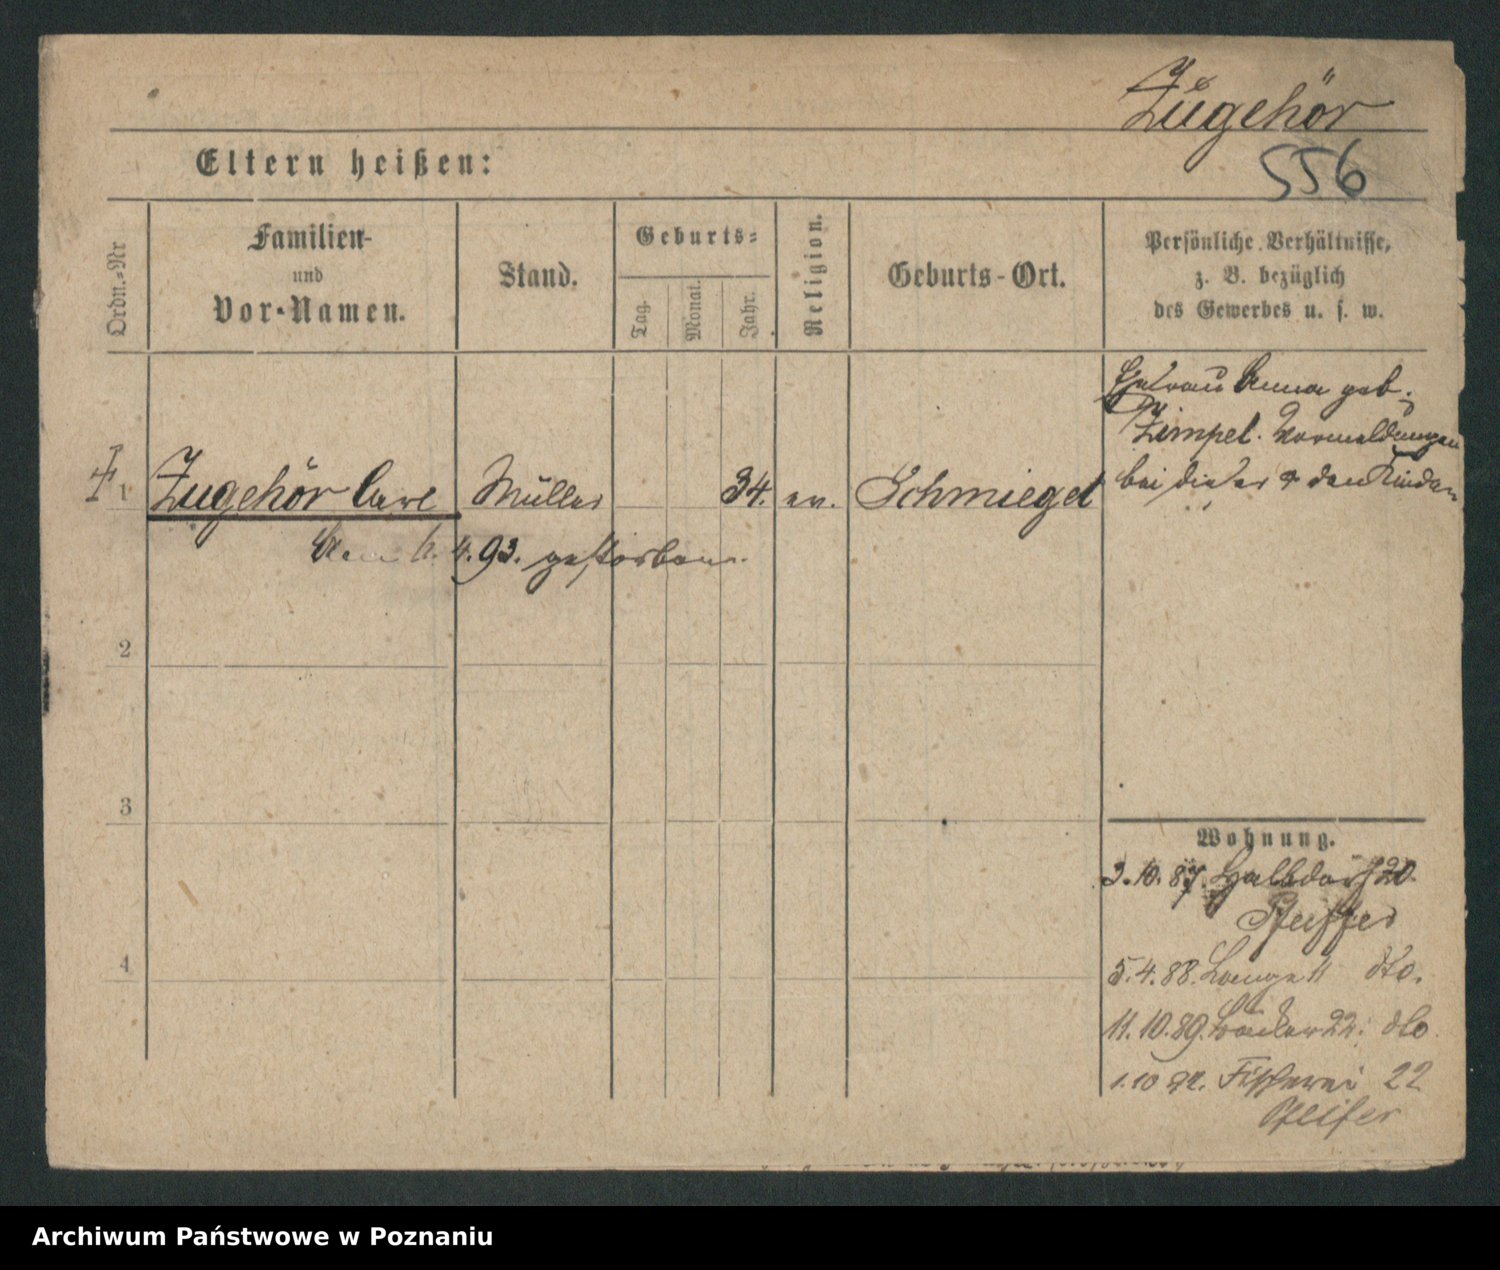 Zugehör
556
Eltern heißen:
Ordn.-Nr
Familien-
und
Vor-Namen.
Stand.
Geburts-
Tag.
Monat.
Jahr.
Religion.
Geburts-Ort.
Persönliche Verhältnisse,
z. B. bezüglich
des Gewerbes u. s. w.
Ehefrau Anna geb.
Zimpel. Vormeldungen
bei dieser & den Kindern
1 Zugehör Carl Müller 34. ev. Schmiegel
4. 93. gestorben.
2
3
4
Wohnung.
3.10.87. Halbdorf 20.
Pfeiffer
5.4.88. Lange 11 dto.
11.10.89. Bäcker 22. dto
1.10 92. Fischerei 22
Pfeifer
Archiwum Państwowe w Poznaniu